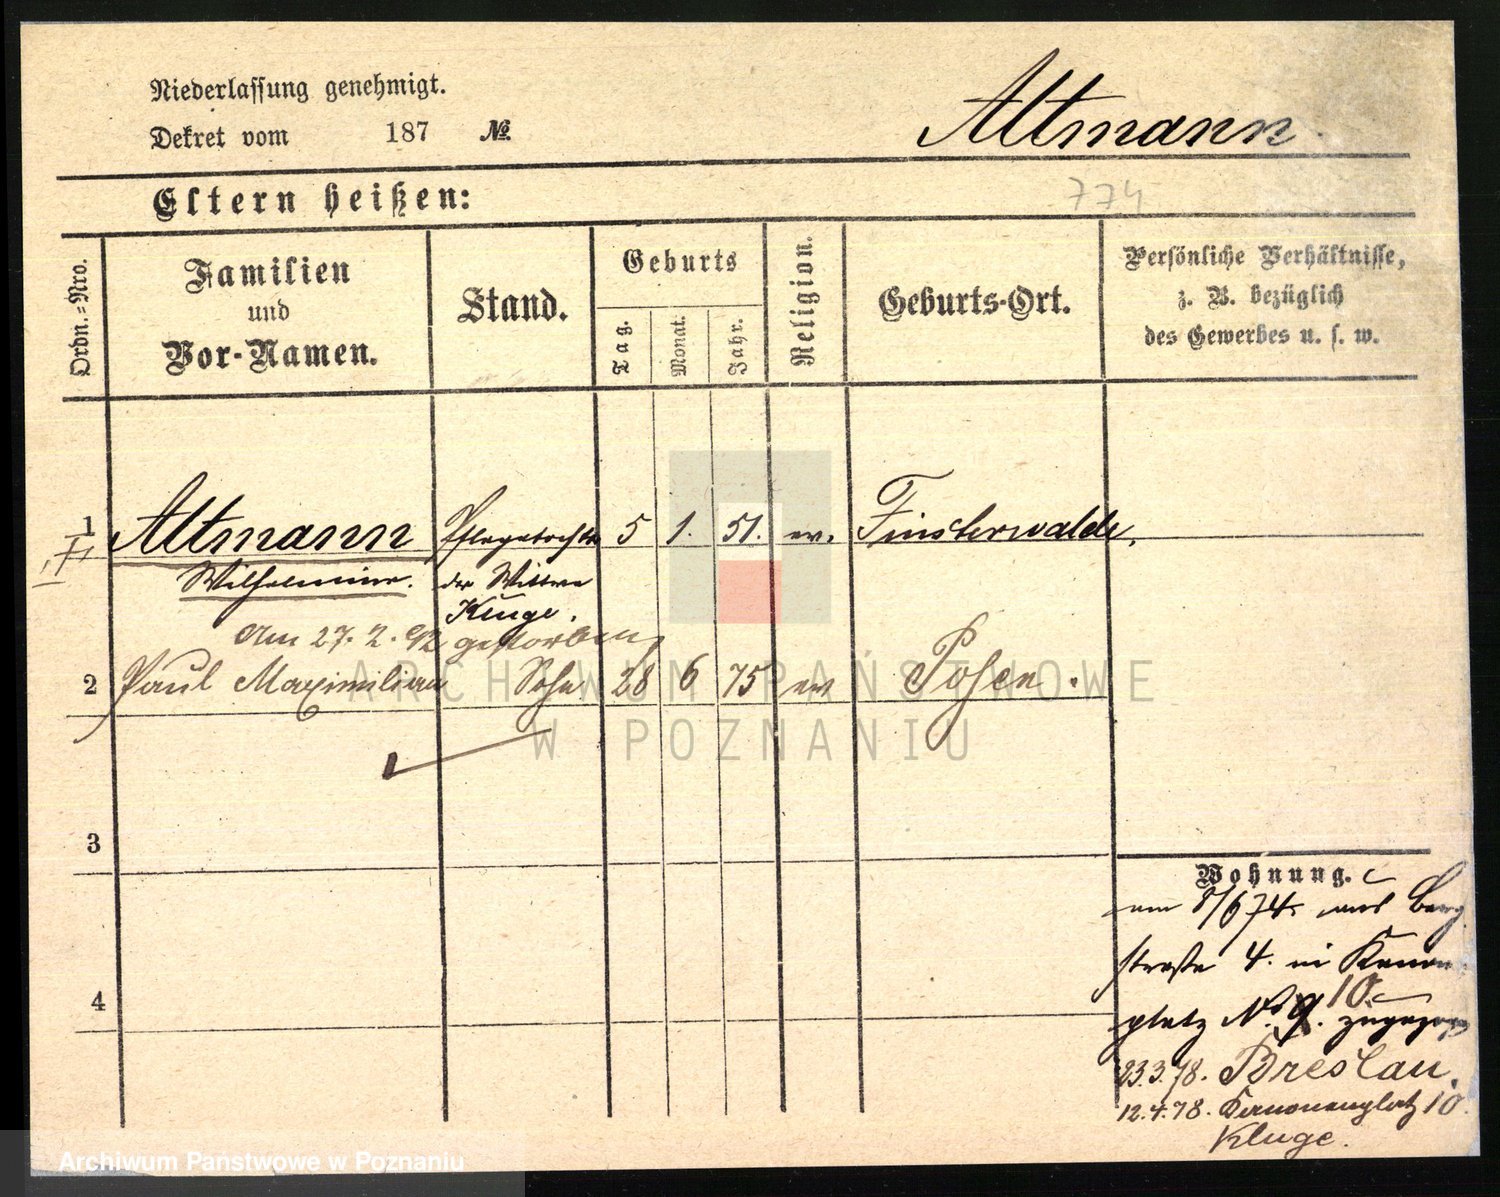 Niederlassung genehmigt.
Dekret vom 187 №
Altmann.
Eltern heißen:
774
Ordn.-Nro.
Familien
und
Vor-Namen.
Stand.
Geburts
Tag.
Monat.
Jahr.
Religion.
Geburts-Ort.
Persönliche Verhältnisse,
z. B. bezüglich
des Gewerbes u. s. w.
1 Altmann Pflegetochter 5 1. 51. ev. Finsterwalde.
Wilhelmine. der Wittwe
Kluge.
Am 27. 2. 92 gestorben
2 Paul Maximilian Sohn 28 6 75 ev Posen.
3
4
Wohnung.
am 8/6 74. aus Berg
straße 4. in Kanon
platz No. 9. 10 zugezogen
23.3.78. Breslau.
12.4.78. Kanonenplatz 10.
Kluge.
ARCHIWUM PAŃSTWOWE
W POZNANIU
Archiwum Państwowe w Poznaniu